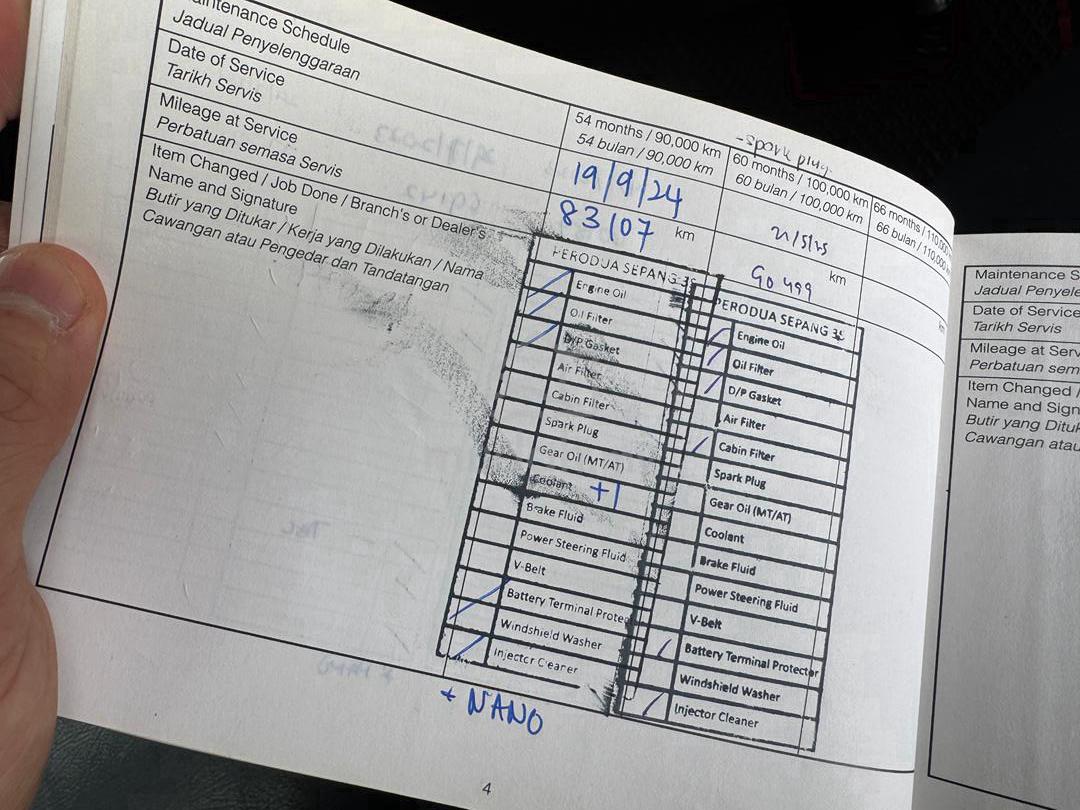 aintenance Schedule
Jadual Penyelenggaraan
Date of Service
Tarikh Servis
Mileage at Service
Perbatuan semasa Servis
Item Changed / Job Done / Branch's or Dealer's
Name and Signature
Butir yang Ditukar / Kerja yang Dilakukan / Nama
Cawangan atau Pengedar dan Tandatangan
54 months / 90,000 km
54 bulan / 90,000 km
19/9/24
83107 km
PERODUA SEPANG 3S
Engine Oil
Oil Filter
D/P Gasket
Air Filter
Cabin Filter
Spark Plug
Gear Oil (MT/AT)
Coolant +1
Brake Fluid
Power Steering Fluid
V-Belt
Battery Terminal Protec
Windshield Washer
Injector Cleaner
+ NANO
- spark plug
60 months / 100,000 km
60 bulan / 100,000 km
21/5/25
90499 km
PERODUA SEPANG 3S
Engine Oil
Oil Filter
D/P Gasket
Air Filter
Cabin Filter
Spark Plug
Gear Oil (MT/AT)
Coolant
Brake Fluid
Power Steering Fluid
V-Belt
Battery Terminal Protector
Windshield Washer
Injector Cleaner
66 months / 110,0
66 bulan / 110,00
km
4
Maintenance S
Jadual Penyele
Date of Service
Tarikh Servis
Mileage at Serv
Perbatuan sem
Item Changed /
Name and Sign
Butir yang Dituk
Cawangan atau